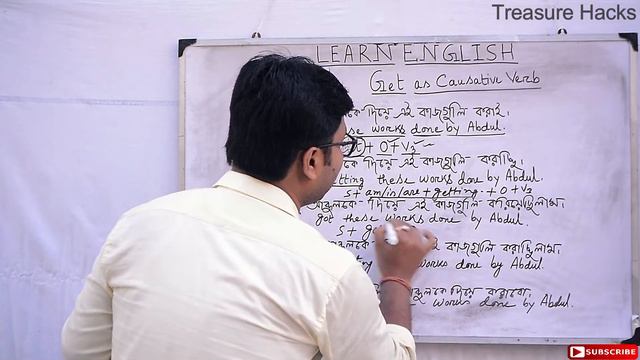 Treasure Hacks
LEARN ENGLISH
Get as Causative Verb
দিয়ে এই কাজগুলি করাই।
works done by Abdul.
+ O + V3
দিয়ে এই কাজগুলি করাচ্ছি।
these works done by Abdul.
S + am/is/are + getting + O + V3
দিয়ে এই কাজগুলি করিয়েছিলাম।
got these works done by Abdul.
S +
কাজগুলি করাচ্ছিলাম।
works done by Abdul.
দিয়ে করাবো।
works done by Abdul.
SUBSCRIBE